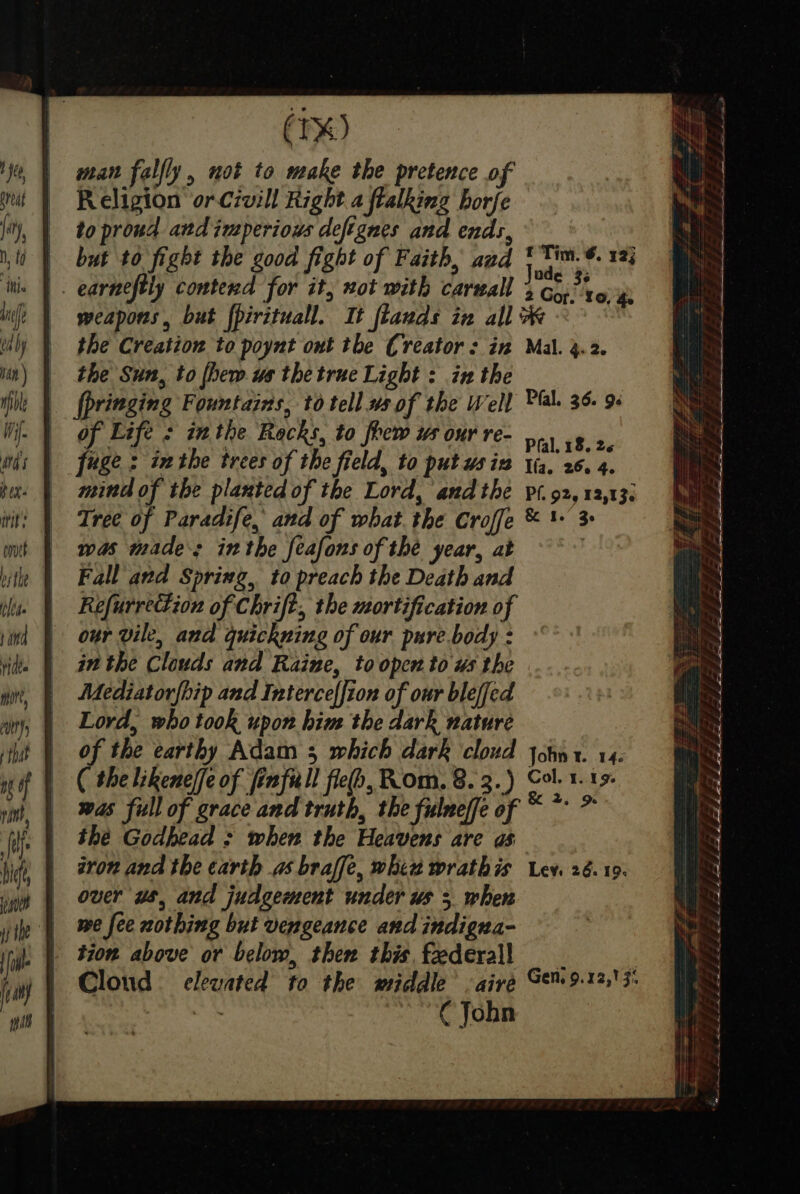 (IX)
man falſly, not to make the pretence of
Religion or Civill Right a ſtalking horſe
to proud and imperious deſignes and ends,
but to fight the good fight of Faith, and
earneſtly contend for it, not with carnall
weapons, but ſpirituall. It ſtands in all
the Creation to poynt out the Creator: in
the Sun, to ſhew us the true Light: in the
ſpringing Fountains, to tell us of the Well
of Life: in the Rocks, to ſhew us our re-
fuge: in the trees of the field, to put us in
mind of the planted of the Lord, and the
Tree of Paradiſe, and of what the Croſſe
was made: in the ſeaſons of the year, at
Fall and Spring, to preach the Death and
Reſurrection of Chriſt, the mortification of
our vile, and quickning of our pure body:
in the Clouds and Raine, to open to us the
Mediatorſhip and Interceſſion of our bleſſed
Lord, who took upon him the dark nature
of the earthy Adam; which dark cloud
(the likeneſſe of ſinfull fleſh, Rom. 8. 3.)
was full of grace and truth, the fulneſſe of
the Godhead: when the Heavens are as
iron and the earth as braſſe, when wrath is
over us, and judgement under us; when
we ſee nothing but vengeance and indigna-
tion above or below, then this fœderall
Cloud elevated to the middle aire
C John
1 Tim. 6. 12;
Jude 3.
2 Cor. 10. 4.
Mal. 4. 2.
Pſal. 36. 9.
Pſal. 18. 2.
Iſa. 26. 4.
Pſ. 92, 12,13.
& 1. 3.
John 1. 14.
Col. 1. 19.
& 2. 9.
Lev. 26. 19.
Gen. 9.12,13.